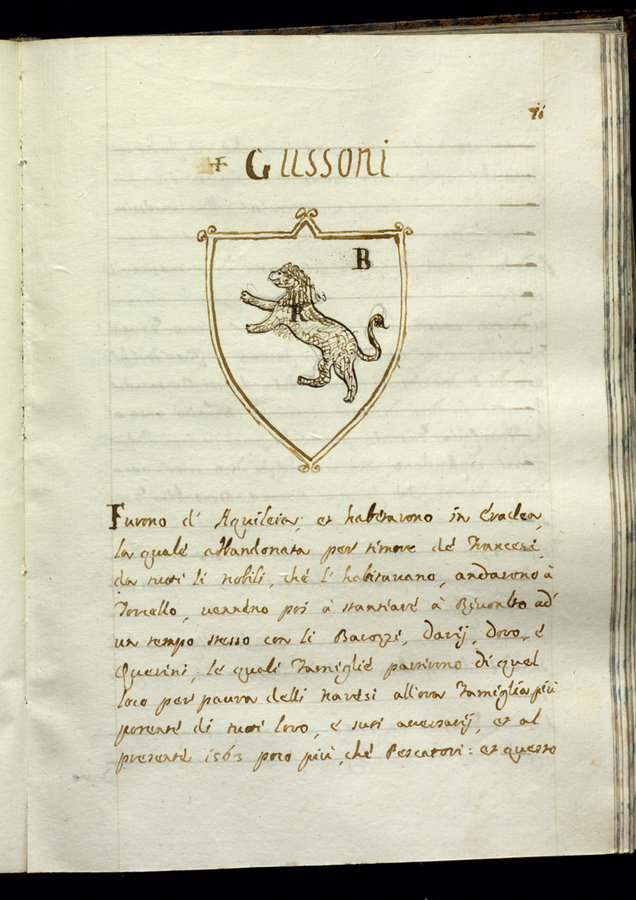 + Gussoni
B
R
Furono d' Aquileia, et habitarono in Eraclea,
la quale abbandonata per timore de Francesi,
da tutti li nobili, che l' habitavano, andarono à
Torcello, vennéno poi à stantiare à Rivoalto ad
un tempo stesso con li Barozzi, Darij, Doro, è
Querini, le quali Famiglie partirono di quel
loco per paura delli Navesi allora Famiglia più
potente di tutti loro, è suoi aversarij, et al
presente 1563 poco più, che Pescatori: et questo